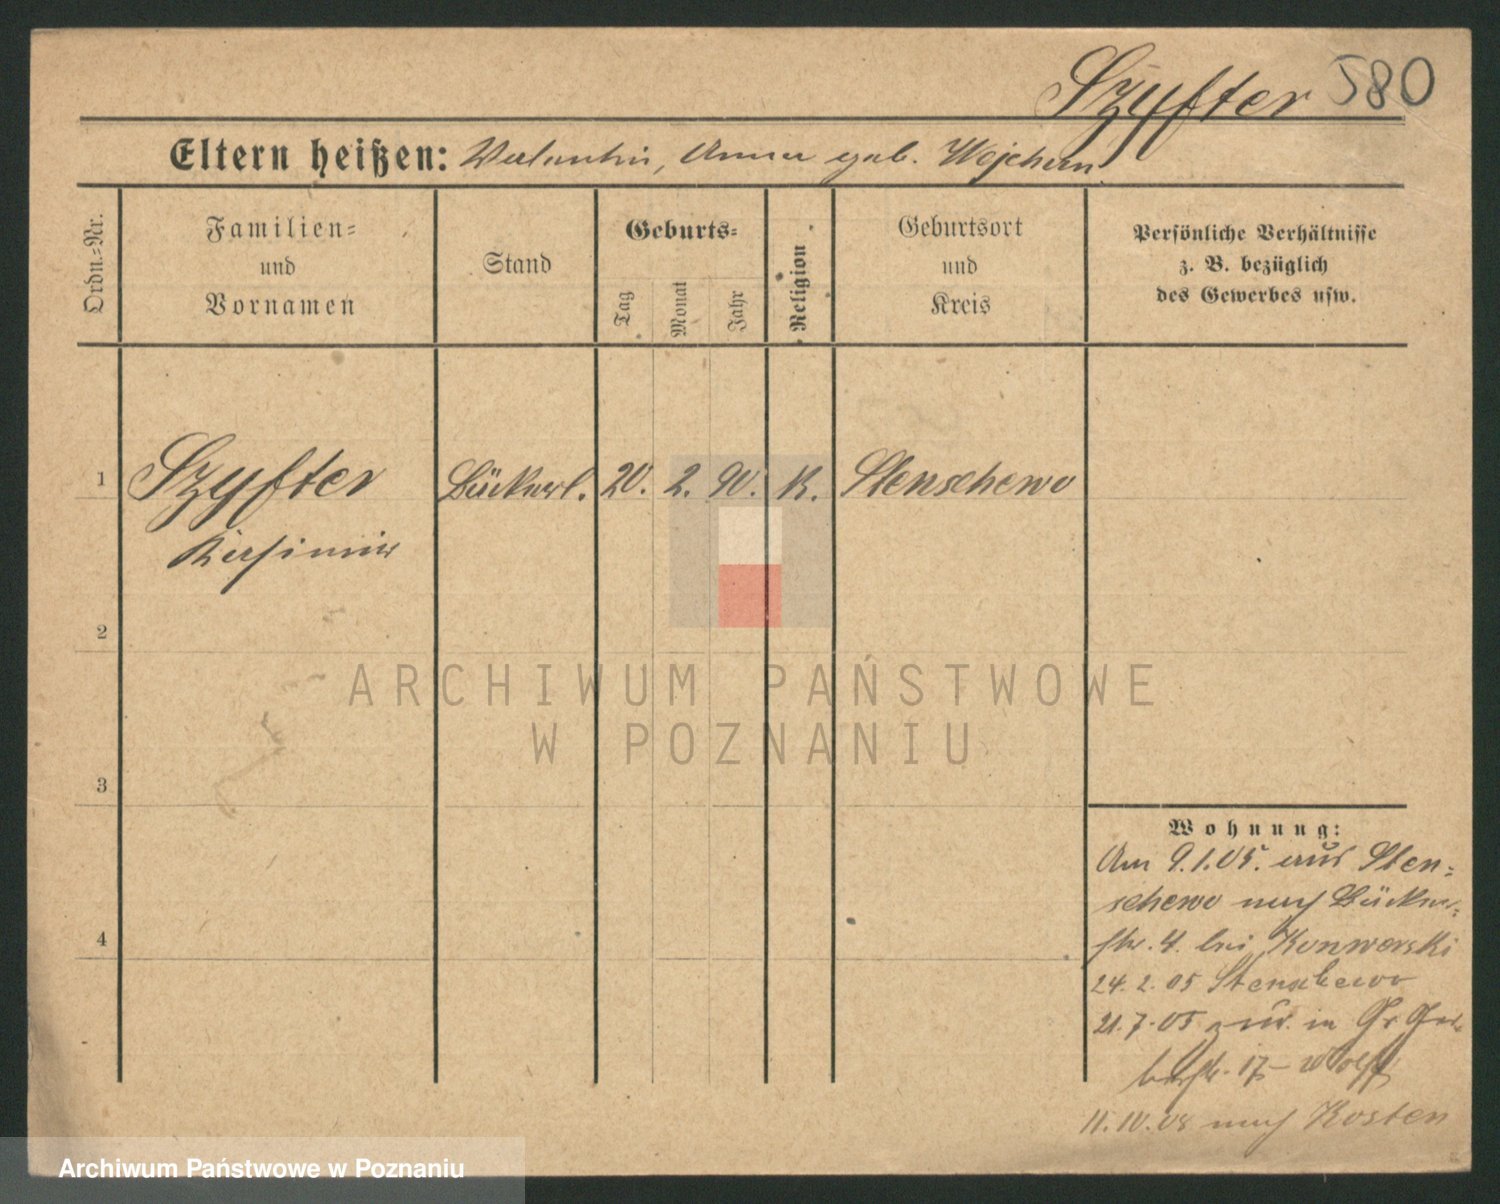 Szyfter 580
Eltern heißen: Valentin, Anna geb. Wojchem
Ordn.-Nr.
Familien-
und
Vornamen
Stand
Geburts-
Tag
Monat
Jahr
Religion
Geburtsort
und
Kreis
Persönliche Verhältnisse
z. B. bezüglich
des Gewerbes usw.
1 Szyfter Bäckerl. 20. 2. 90. K. Stenschewo
Kasimir
2
3
4
ARCHIWUM PAŃSTWOWE
W POZNANIU
Wohnung:
Am 9.1.05. aus Sten-
schewo nach Bäcker-
str. 4. bei Konwerski
24. 2. 05 Stenschewo
21. 7. 05 zur. in Gr. Ger-
berstr. 17 - Wolff
11. 10. 05 nach Kosten
Archiwum Państwowe w Poznaniu